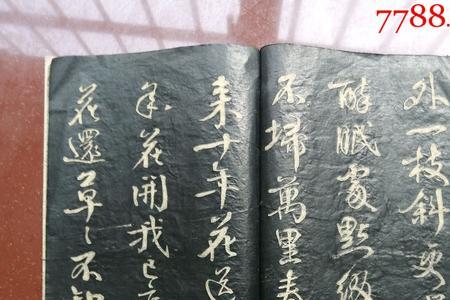 7788.
外一枝斜更
醉眠處點綴
不掃萬里春
來十年花送
年花開我已
花還草〻不知